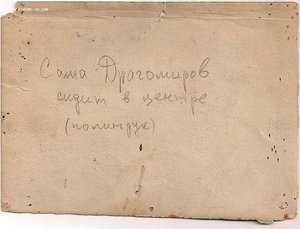 Саша Драгомиров
сидит в центре
(политрук)